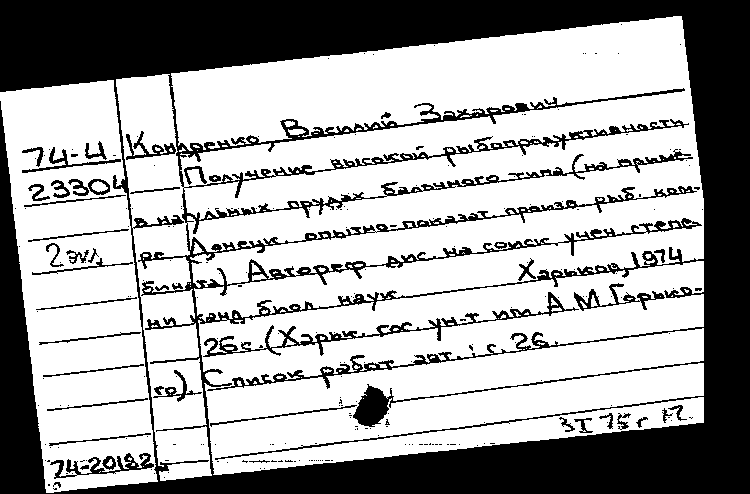 74-4 Кондренко, Василий Захарович.
23304 Получение высокой рыбопродуктивности
в нагульных прудах балочного типа (на приме-
2 экз. ре Донецк. опытно-показат. произв. рыб. ком-
бината). Автореф дис. на соиск. учен. степе-
ни канд. биол. наук. Харьков, 1974
26 с. (Харьк. гос. ун-т им. А М Горько-
го). Список работ авт.: с. 26.
3 I 75 г
74-20182